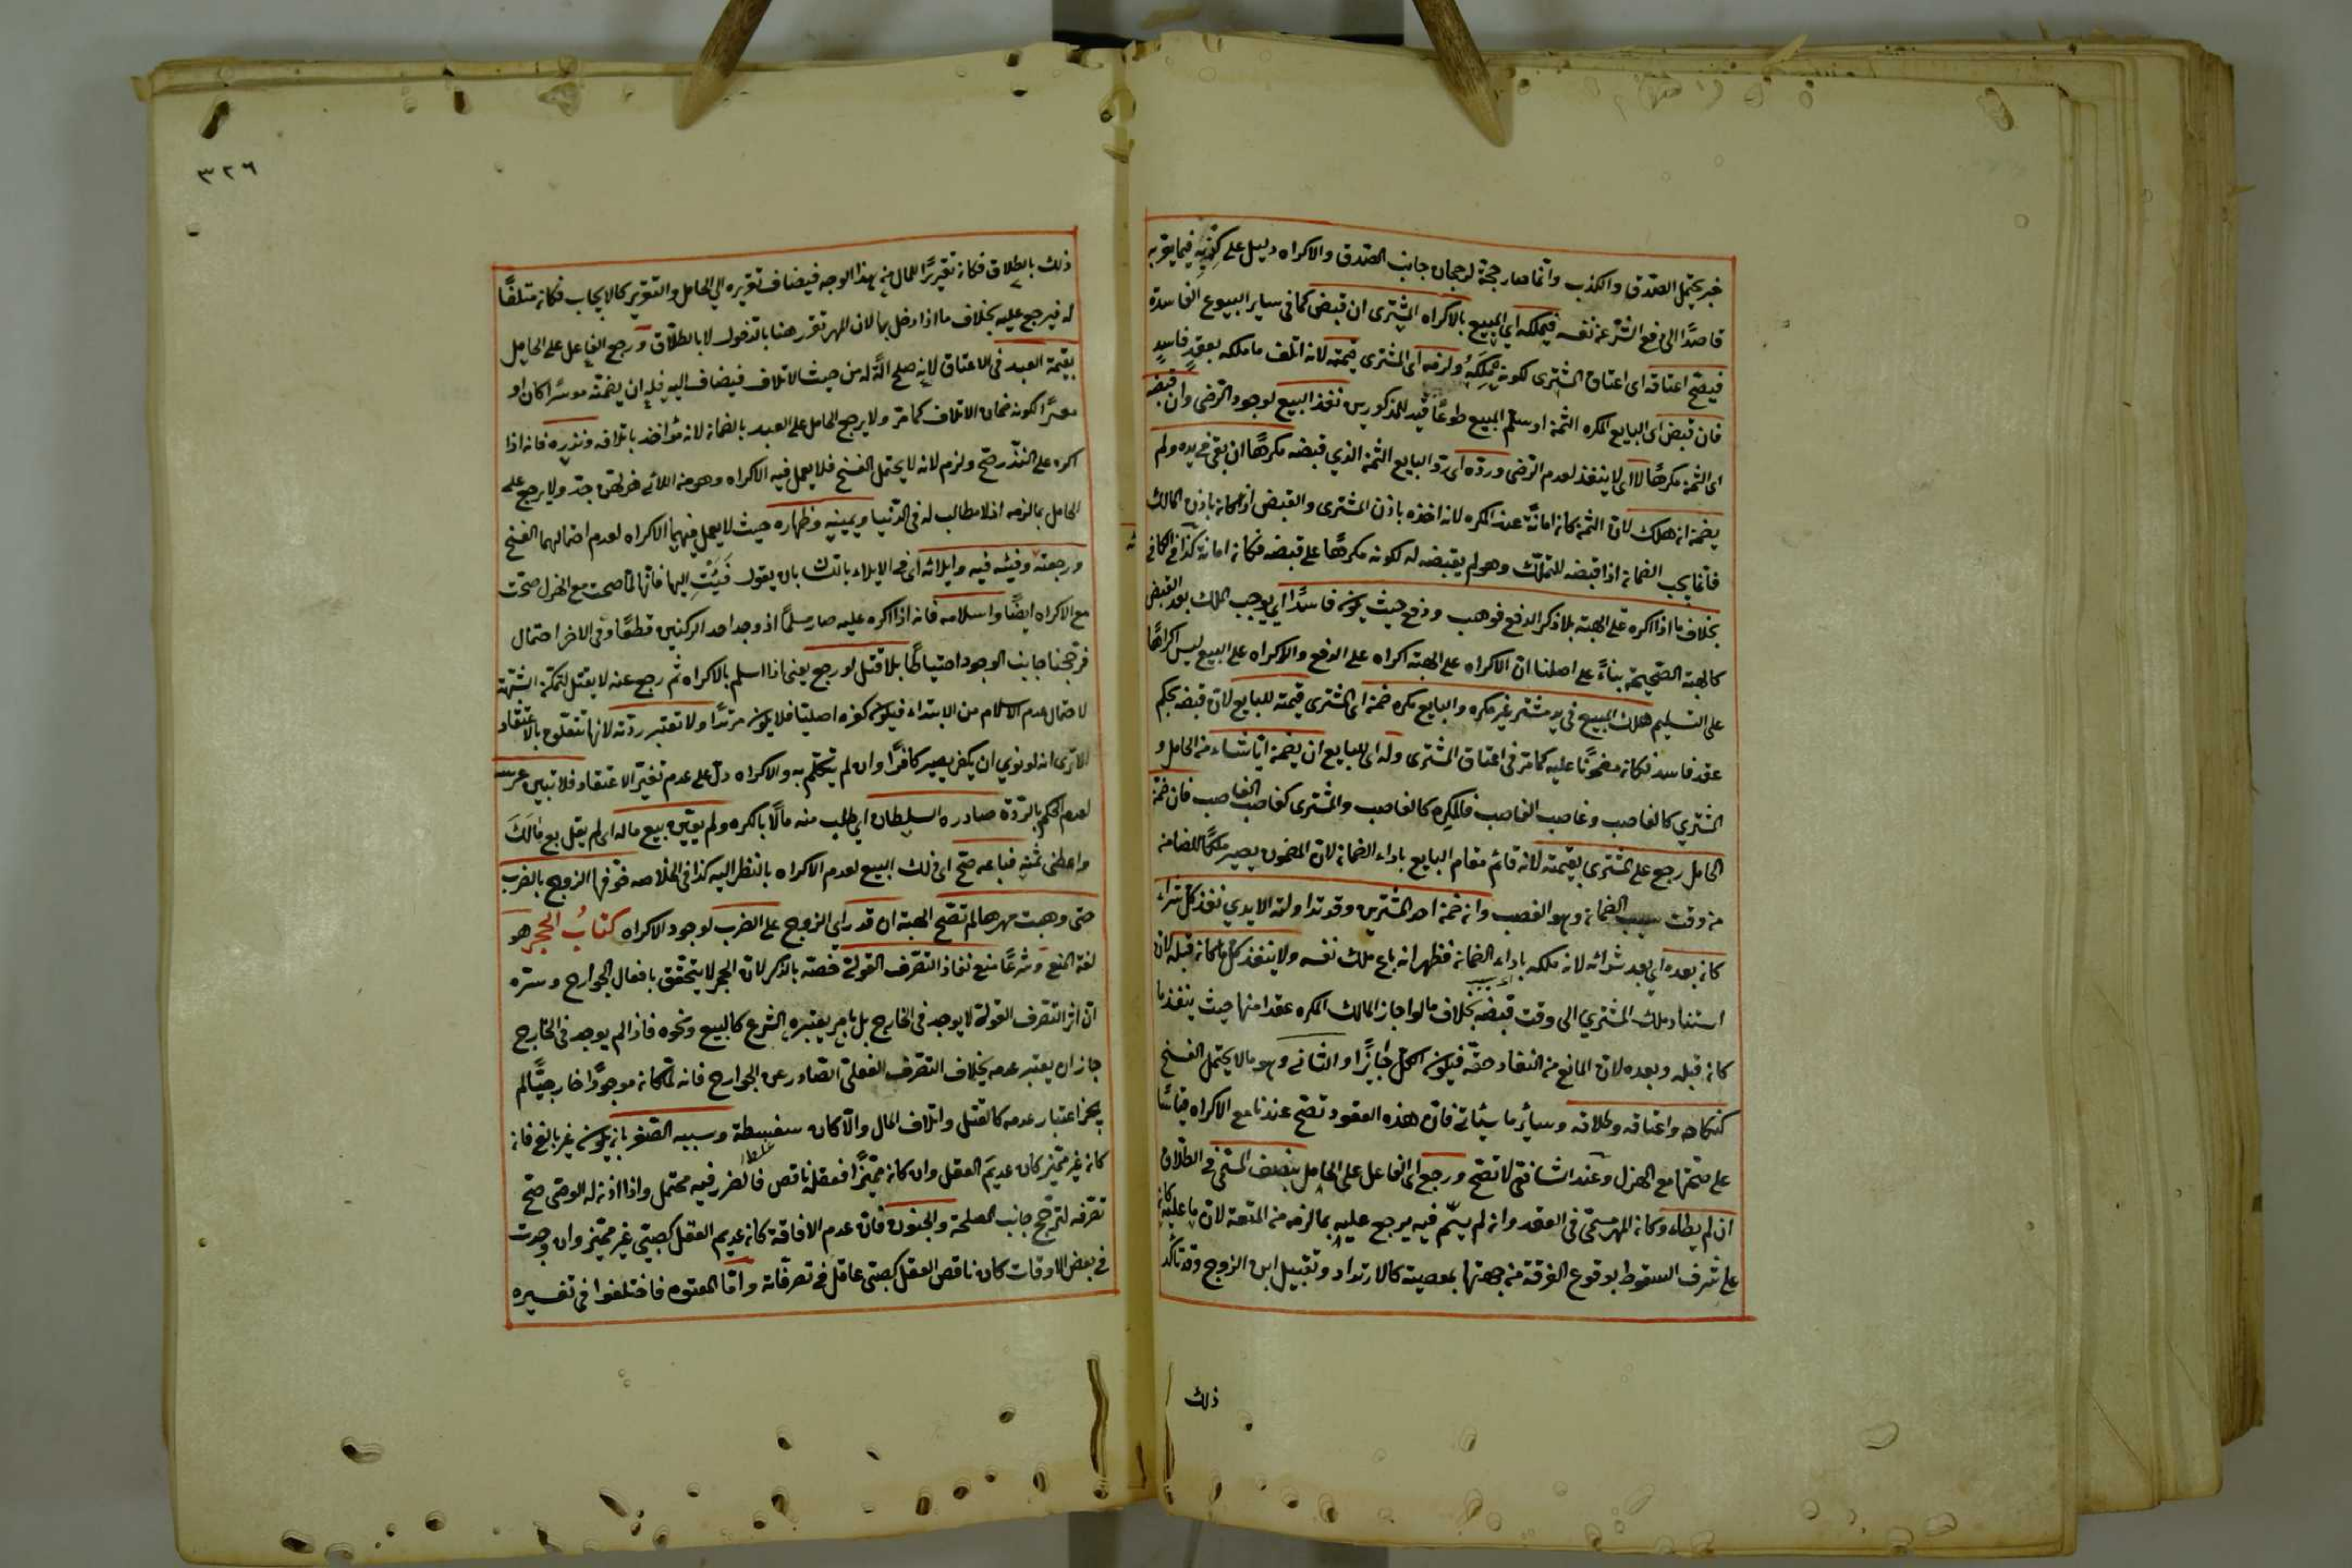 خبر يحتمل الصدق والكذب وانما صار حجة لرجحان جانب الصدق والاكراه دليل على كذبه فيما يقر به
قاصدًا الى دفع الشر عن نفسه فيملكه اى المبيع بالاكراه المشترى ان قبض كما فى ساير البيوع الفاسدة
فيصح اعتاقه اى اعتاق المشترى لكونه ملكه ولزمه اى المشترى قيمته لانه اتلف ما ملكه بعقد فاسد
فان قبض اى البايع المكره الثمن او سلم المبيع طوعًا قيد للمذكورين نفذ البيع لوجود الرضى وان قبضه
اى الثمن مكرهًا لا اى لا ينفذ لعدم الرضى ورده اى رد البايع الثمن الذي قبضه مكرهًا ان بقى فى يده ولم
يضمن ان هلك لان الثمن كان امانة عند المكره لانه اخذه باذن المشترى والقبض اذا كان باذن المالك
فانما يجب الضمان اذا قبضه للتملك وهو لم يقبضه له لكونه مكرهًا على قبضه فكان امانة كذا فى الكافى
بخلاف ما اذا اكره على الهبة بلا ذكر الدفع فوهب ودفع حيث يكون فاسدًا اى يوجب الملك بعد القبض
كالهبة الصحيحة بناءً على اصلنا ان الاكراه على الهبة اكراه على الدفع والاكراه على البيع ليس اكراهًا
على التسليم هلك المبيع فى يد مشتر غير مكره والبايع مكره ضمن اى المشترى قيمته للبايع لان قبضه بحكم
عقد فاسد فكان مضمونًا عليه كما مر فى اعتاق المشترى وله اى للبايع ان يضمن ايا شاء من الحامل و
المشتري كالغاصب وغاصب الغاصب فالمكره كالغاصب والمشترى كغاصب الغاصب فان ضمن
الحامل رجع على المشترى بقيمته لانه قائم مقام البايع باداء الضمان لان المضمون يصير ملكًا للضامن
من وقت سبب الضمان وهو الغصب وان ضمن احد المشترين وقد تداولته الايدي نفذ كل شراء
كان بعده اى بعد شرائه لانه ملكه باداء الضمان فظهر انه باع ملك نفسه ولا ينفذ كل ما كان قبله لان
استناد ملك المشتري الى وقت قبضه بخلاف ما لو اجاز المالك المكره عقدا منها حيث ينفذ ما
كان قبله وبعده لان المانع من النفاد حقه فيكون الكل جايزًا والثانى وهو ما لا يحتمل الفسخ
كنكاحه واعتاقه وطلاقه وسائر ما سيئاتى فان هذه العقود تصح عندنا مع الاكراه قياسًا
على صحتها مع الهزل وعند الشافعى لا تصح ورجع اى الفاعل على الحامل بنصف المسمى فى الطلاق
ان لم يطاء وكان المهر مسمى فى العقد وان لم يسم فيه يرجع عليه بما لزمه من المتعة لان ما عليه كان
على شرف السقوط بوقوع الفرقة من جهتها بمعصية كالارتداد وتقبيل ابن الزوج وقد تاكد
ذلك
٣٢٦
ذلك بالطلاق فكان تقريرًا للمال من هذا الوجه فيضاف تقريره الى الحامل والتقرير كالايجاب فكان متلفًا
له فيرجع عليه بخلاف ما اذا دخل بها لان المهر تقرر هنا بالدخول لا بالطلاق ورجع الفاعل على الحامل
بقيمة العبد فى الاعتاق لانه صلح الة له من حيث الاتلاف فيضاف اليه فله ان يضمنه موسرًا كان او
معسرًا لكونه ضمان الاتلاف كما مر ولا يرجع الحامل على العبد بالضمان لانه مؤاخذ باتلافه ونذره فانه اذا
اكره على النذر صح ولزم لانه لا يحتمل الفسخ فلا يعمل فيه الاكراه وهو من اللاتى هزلهن جد ولا يرجع على
الحامل بما لزمه اذ لا مطالب له فى الدنيا ويمينه وظهاره حيث لا يعمل فيهما الاكراه لعدم احتمالهما الفسخ
ورجعته وفيئه فيه وايلائه اى فى الايلاء باللسان بان يقول فئت اليها فانها لما صحت مع الهزل صحت
مع الاكراه ايضًا واسلامه فانه اذا اكره عليه صار مسلمًا اذ وجد احد الركنين قطعًا وفى الاخر احتمال
فرجحنا جانب الوجود احتياطًا بلا قتل لو رجع يعنى اذا اسلم بالاكراه ثم رجع عنه لا يقتل لتمكن الشبهة
لاحتمال عدم الاسلام من الابتداء فيكون كفره اصليا فلا يكون مرتدًا ولا تعتبر ردته لانها تتعلق بالاعتقاد
الا ترى انه لو نوي ان يكفر يصير كافرًا وان لم يتكلم به والاكراه دل على عدم تغير الاعتقاد فلا تبين عرسه
لعدم الحكم بالردة صادره السلطان اى طلب منه مالًا بالكره ولم يعين بيع ماله اى لم يقل بع مالك
واعطنى ثمنه فباعه صح اى ذلك البيع لعدم الاكراه بالنظر اليه كذا فى الخلاصه خوفها الزوج بالضرب
حتى وهبت مهرها لم تصح الهبة ان قدر اى الزوج على الضرب لوجود الاكراه كتاب الحجر هو
لغة المنع وشرعًا منع نفاذ التصرف القولى خصه بالذكر لان الحجر لا يتحقق بافعال الجوارح وسره
ان اثر التصرف القولى لا يوجد فى الخارج بل بامر يعتبره الشرع كالبيع ونحوه فاذا لم يوجد فى الخارج
جاز ان يعتبر عدمه بخلاف التصرف الفعلى الصادر عن الجوارح فانه لما كان موجودًا خارجيًا لم
يجز اعتبار عدمه كالقتل واتلاف المال والا كان سفسطة وسببه الصغر بان يكون غير بالغ فانه
كان غير مميز كان عديم العقل وان كان مميزًا فعقله ناقص فالضرر فيه محتمل واذا اذن له الوصى صح
تصرفه لترجح جانب المصلحة والجنون فان عدم الافاقة كان عديم العقل كصبى غير مميز وان وجدت
فى بعض الاوقات كان ناقص العقل كصبى عاقل فى تصرفاته واما المعتوه فاختلفوا فى تفسيره